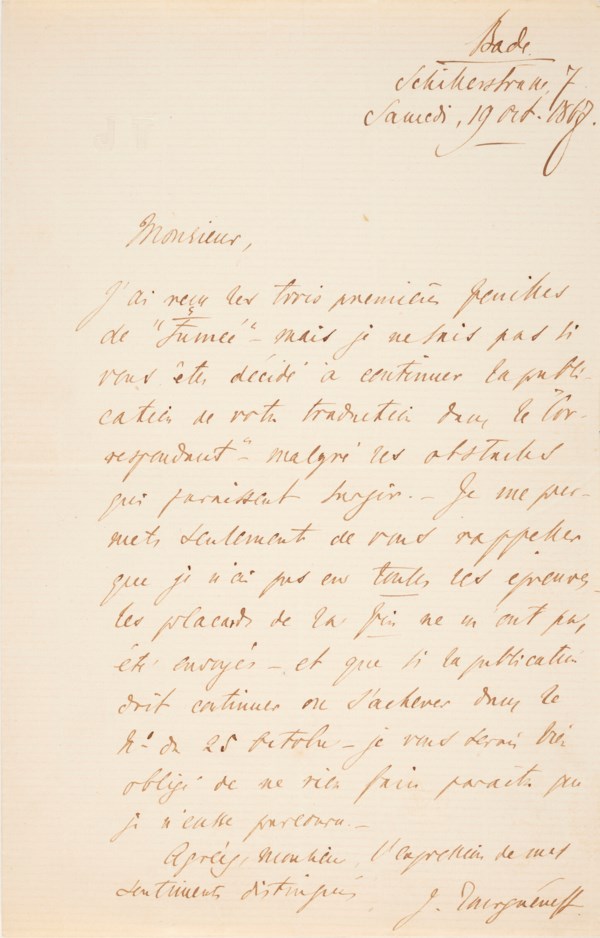 Bade.
Schillerstrasse, 7
Samedi, 19 Oct. 1867.
Monsieur,
J'ai reçu les trois premières feuilles
de "Fumée" – mais je ne sais pas si
vous êtes décidé à continuer la publi-
cation de votre traduction dans le "Cor-
respondant" – malgré les obstacles
qui paraissent surgir. – Je me per-
mets seulement de vous rappeller
que je n'ai pas eu toutes les épreuves –
les placards de la fin ne m'ont pas
été envoyés – et que si la publication
doit continuer ou s'achever dans le
Nº du 25 Octobre – je vous serais bien
obligé de ne rien faire paraître que
je n'eusse parcouru. –
Agréez, Monsieur, l'expression de mes
sentiments distingués
J. Tourguéneff